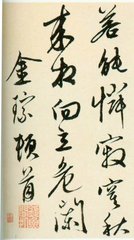 若能憐寂寞秋
來相向立危闌
金琮頓首